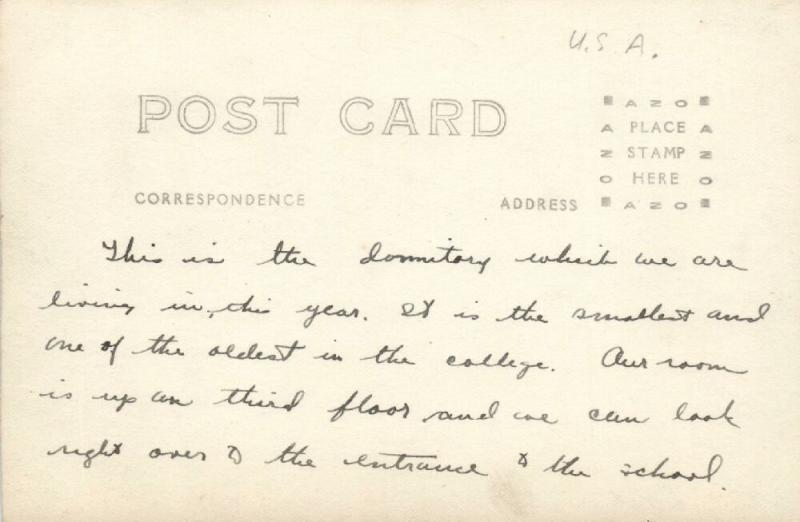 U.S.A.
POST CARD
AZO
A PLACE A
Z STAMP Z
O HERE O
AZO
CORRESPONDENCE
ADDRESS
This is the dormitory which we are
living in, this year. It is the smallest and
one of the oldest in the college. Our room
is up on third floor and we can look
right over to the entrance to the school.